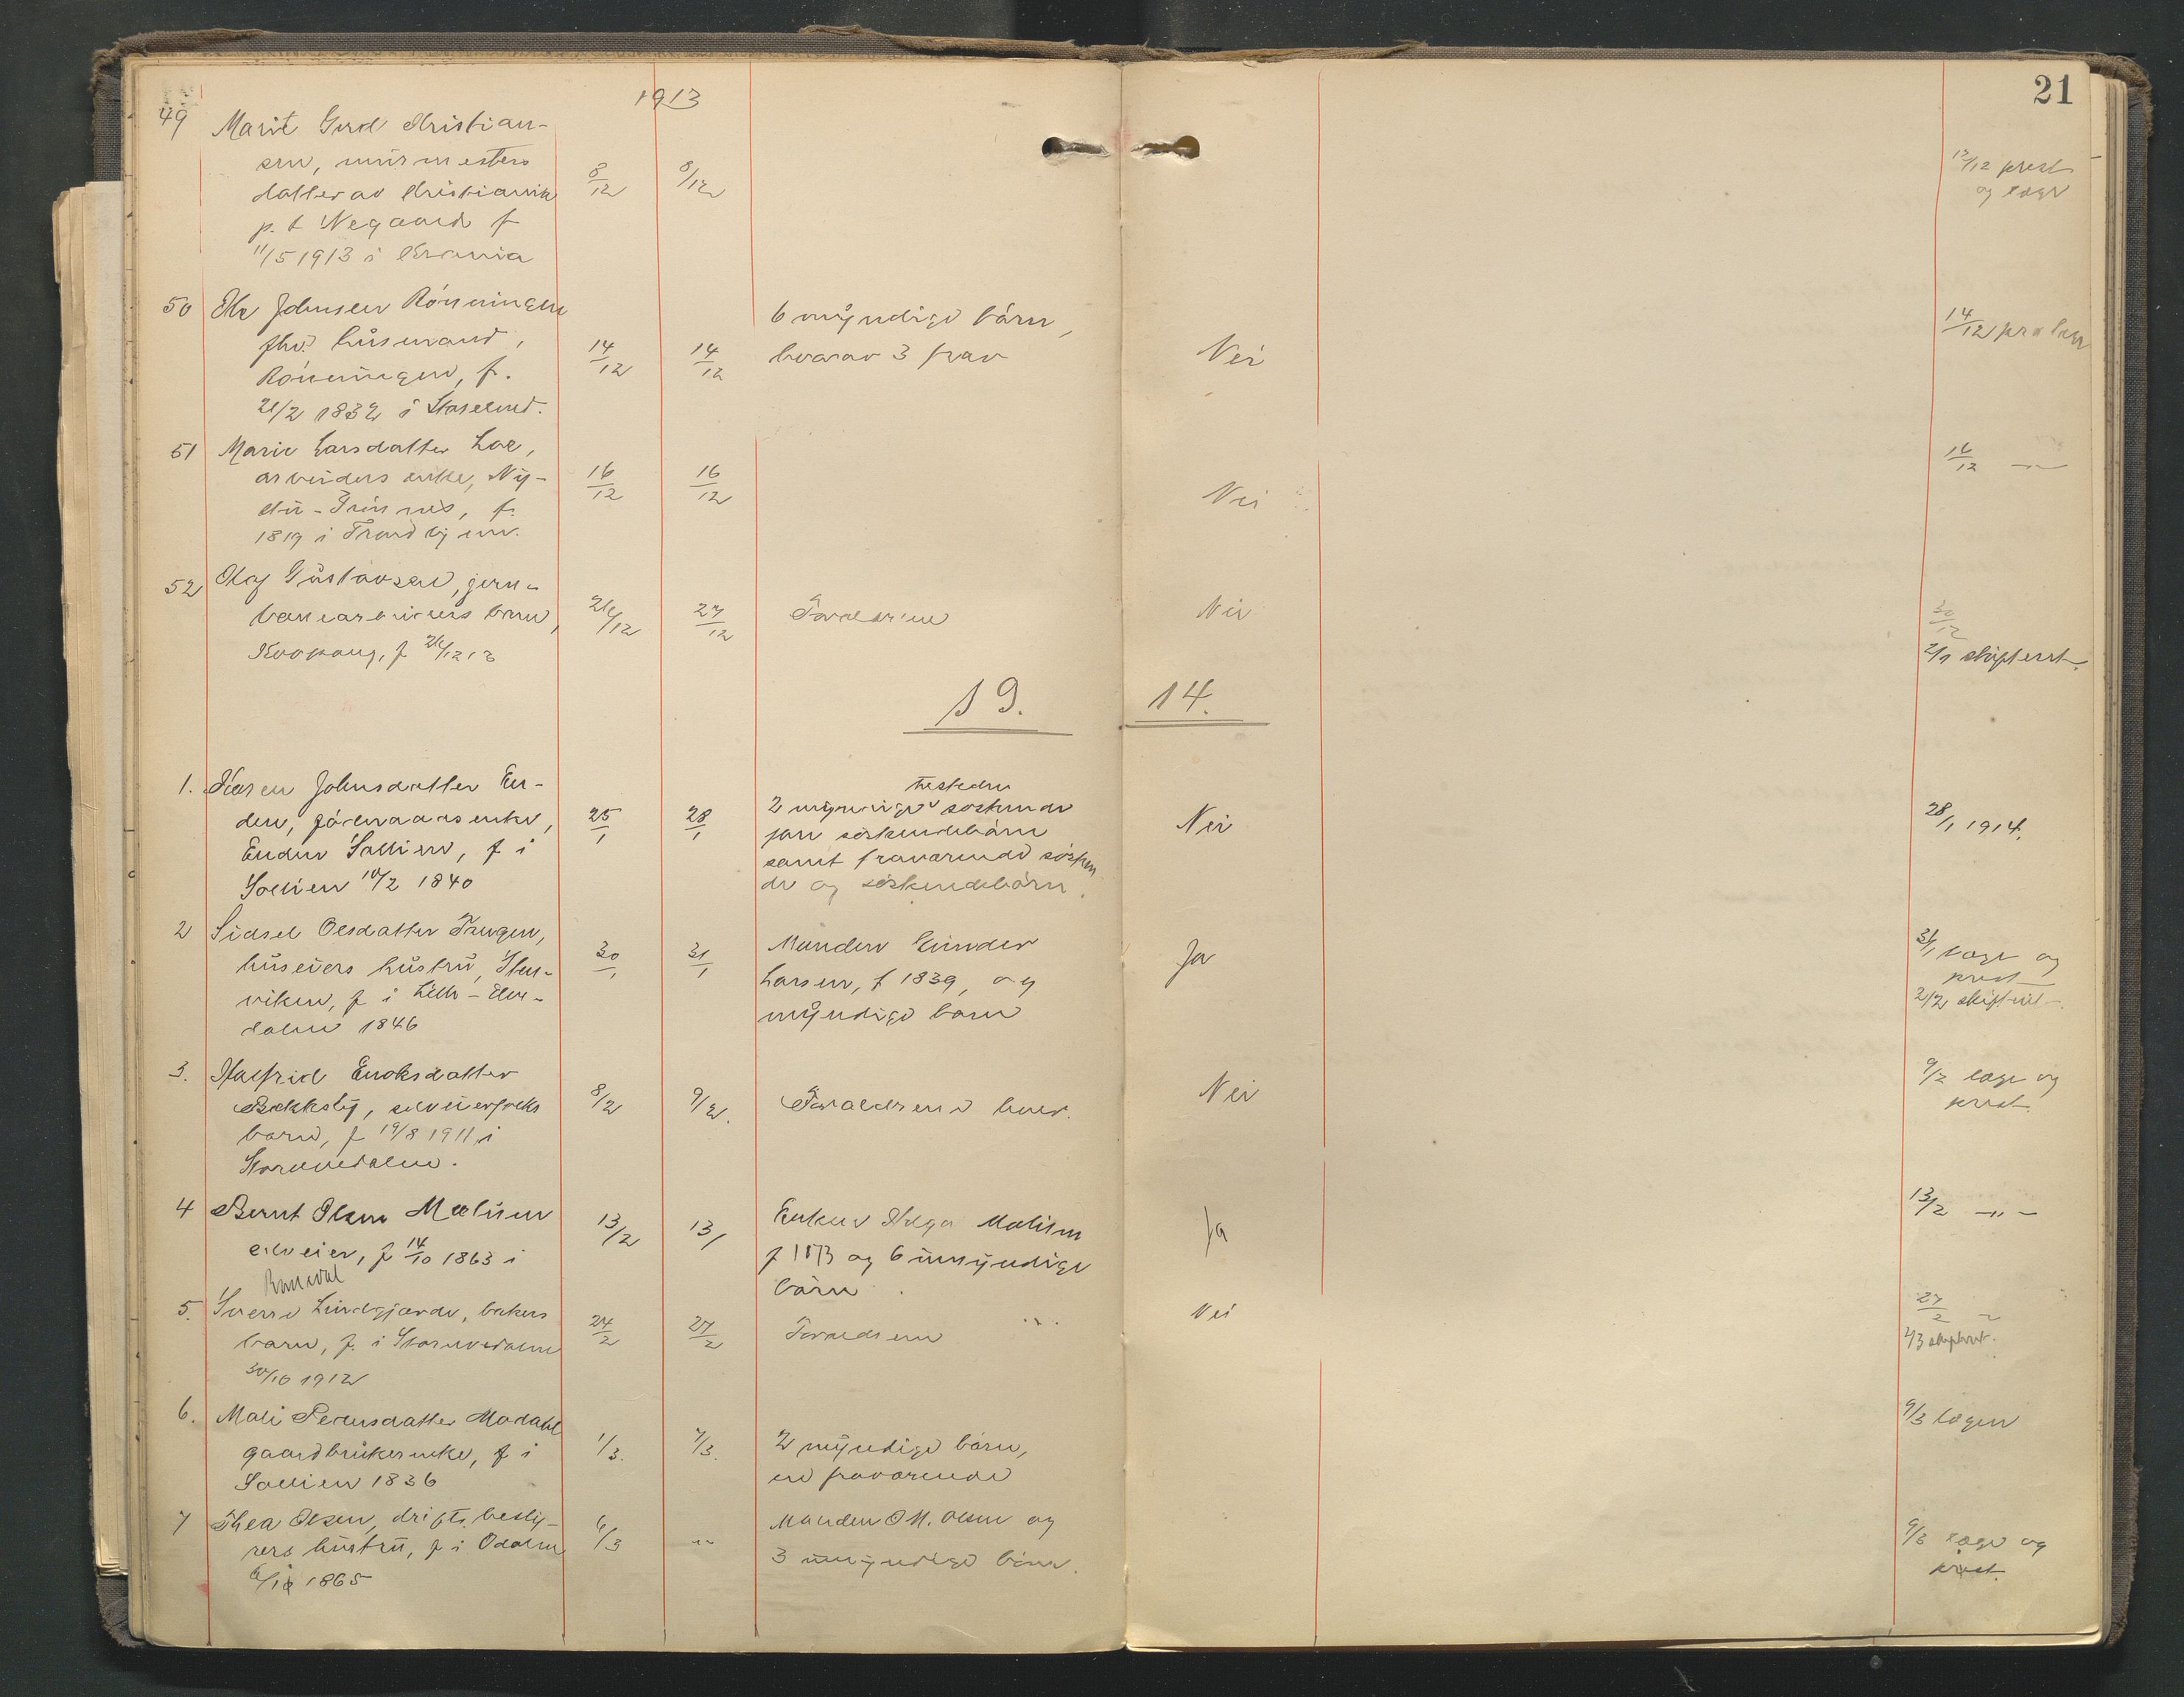 21
1913
49 Marit Gurd Kristian-
sen, mürmesters
datter av Kristiania
p. t Negaard f
11/5 1913 i Krania
8/12 8/12
12/12 prest
og læge
50 Ole Johnsen Rönningen
fhv. husmand,
Rönningen, f.
21/2 1832 i
14/12 14/12
6 myndige börn,
hvorav 3 frav
Nei
14/12
51 Marie Larsdatter Loe,
arbeiders enke, Ny-
stu-Trönnes, f.
1819 i Trondhjem.
16/12 16/12
Nei
16/12 -"-
52 Olaf Gustavsen, jern-
banearbeiders barn,
Koppang, f 26/12 13
26/12 27/12
Forældrene
Nei
30/12
2/1 skifteret.
19. 14.
1. Karen Johnsdatter En-
den, gårdmands enke,
Enden Sollien, f i
Sollien 10/2 1840
25/1 28/1
tilstede
2 myndige söskende
søskendebörn
samt fraværende sösken
de og söskendebörn.
Nei
28/1 1914.
2 Sidsel Olsdatter Tangen,
huseiers hustru, Sten-
viken, f i Lille-Elve-
dalen 1846
30/1 31/1
Manden Gunder
Larsen, f 1839, og
myndige barn
Ja
31/1 læge og
prest
2/2 skifteret.
3. Halfrid Enoksdatter
Bekkeby, selveierfolks
barn, f 19/8 1911 i
Storelvedalen.
8/2 9/2.
Forældrene lever.
Nei
9/2 læge og
prest.
4 Bernt Olsen Mælisen
selveier, f 14/10 1863 i
13/2 13/
Enken Helga Mælisen
f 1873 og 6 umyndige
börn.
Ja
13/2 -"-
5. Sverre Lindgjærde, bakers
barn, f. i Storelvedalen
30/10 1912
24/2 27/2
Forældrene
Nei
27/2 "
2/3 skifteret.
6. Mali Pedersdatter Modahl
gaardbrukerenke, f i
Sollien 1836
1/3. 7/3.
2 myndige börn,
en fraværende
9/3 lægen
7 Thea Olsen, drifts besty-
rers hustru, f i Odalen
1865
6/3 "
Manden O M. Olsen og
3 umyndige börn.
9/3 læge og
prest.